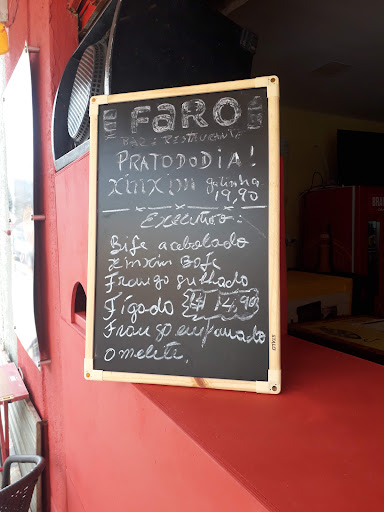 FARO
BAR E RESTAURANTE
PRATO DO DIA!
XINXIM galinha
19,90
EXECUTIVO:
Bife acebolado
Xinxim Bofe
Frango grelhado
Fígado 14,90
Frango empanado
Omelete.